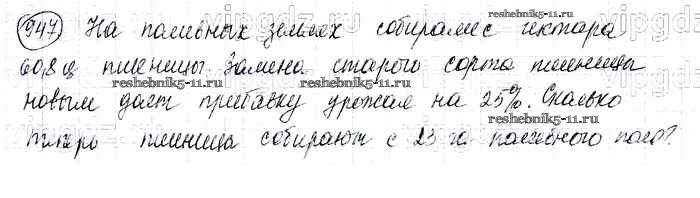 947 На поливных землях собирали с гектара
60,8 ц пшеницы. Замена старого сорта пшеницы
новым дает прибавку урожая на 25%. Сколько
теперь пшеницы собирают с 23 га поливного поля?
reshebnik5-11.ru
reshebnik5-11.ru
reshebnik5-11.ru
reshebnik5-11.ru